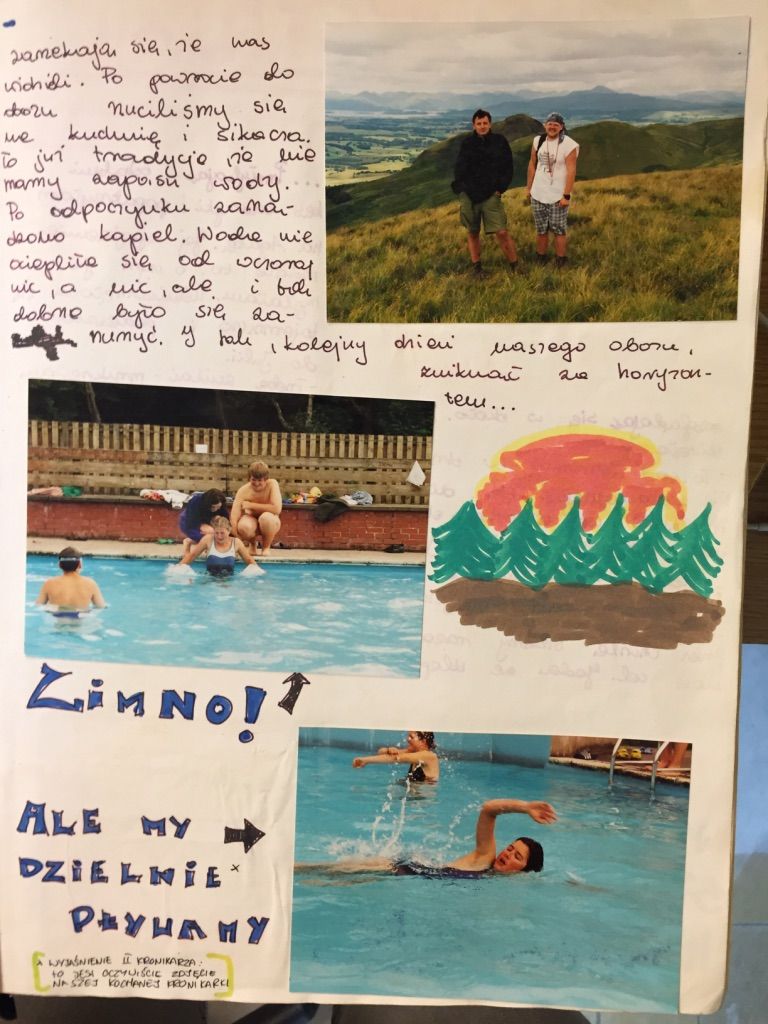 zarzekają się, że nas
widzieli. Po powrocie do
obozu rzuciliśmy się
na kuchnię i sikacza.
To już tradycja że nie
mamy zapasu wody.
Po odpoczynku zarzą-
dzono kąpiel. Woda nie
ociepliła się od wczoraj
nic, a nic, ale i tak
dobrze było się za-
nurzyć. I tak, kolejny dzień naszego obozu,
zniknął za horyzon-
tem...
ZIMNO!
ALE MY
DZIELNIE x
PŁYWAMY
x WYJAŚNIENIE II KRONIKARZA:
TO JEST OCZYWIŚCIE ZDJĘCIE
NASZEJ KOCHANEJ KRONIKARKI